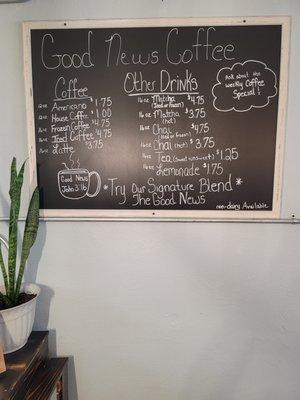 Good News Coffee
Coffee
12 oz Americano $1.75
12 oz House Coffee $1.00
16 oz Frozen Coffee $4.75
16 oz Iced Coffee $4.75
12 oz Latte $3.75
Good News
John 3:16
Other Drinks
16 oz Matcha $4.75
(Iced or frozen)
Matcha $3.75
(hot)
Chai $4.75
(Iced or frozen)
Chai (hot) $3.75
16 oz Tea (sweet/unsweet) $1.25
16 oz Lemonade $1.75
Ask about the
weekly Coffee
Special!
*Try Our Signature Blend*
The Good News
non-dairy Available